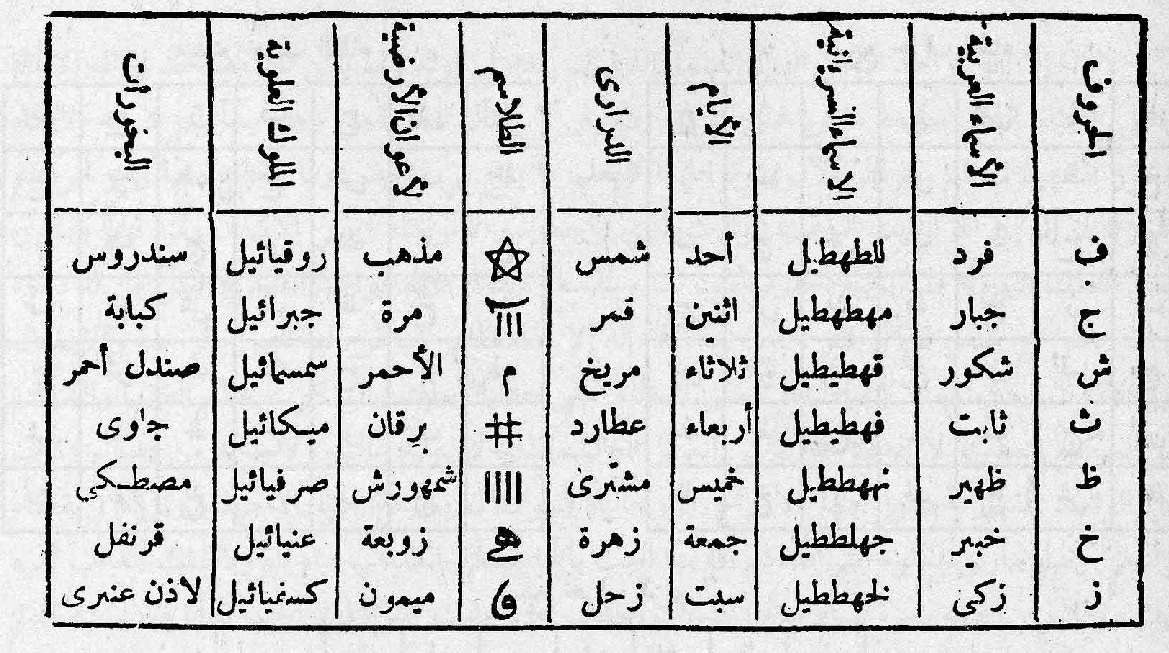 الحروف الأسماء العربية الاسماء السريانية الأيام الدرارى الطلاسم لأعوان الأرضية الملوك العلوية البخورات
ف فرد للطهطيل أحد شمس مذهب روقيائيل سندروس
ج جبار مهطهطيل اثنين قمر مرة جبرائيل كبابة
ش شكور قهطيطيل ثلاثاء مريخ م الأحمر سمسمائيل صندل أحمر
ث ثابت فهطيطيل أربعاء عطارد # برقان ميكائيل جاوى
ظ ظهير نههططيل خميس مشترى شمهورش صرفيائيل مصطكي
خ خبير جهلططيل جمعة زهرة زوبعة عنيائيل قرنفل
ز زكى لخهططيل سبت زحل ميمون كسفيائيل لاذن عنبرى